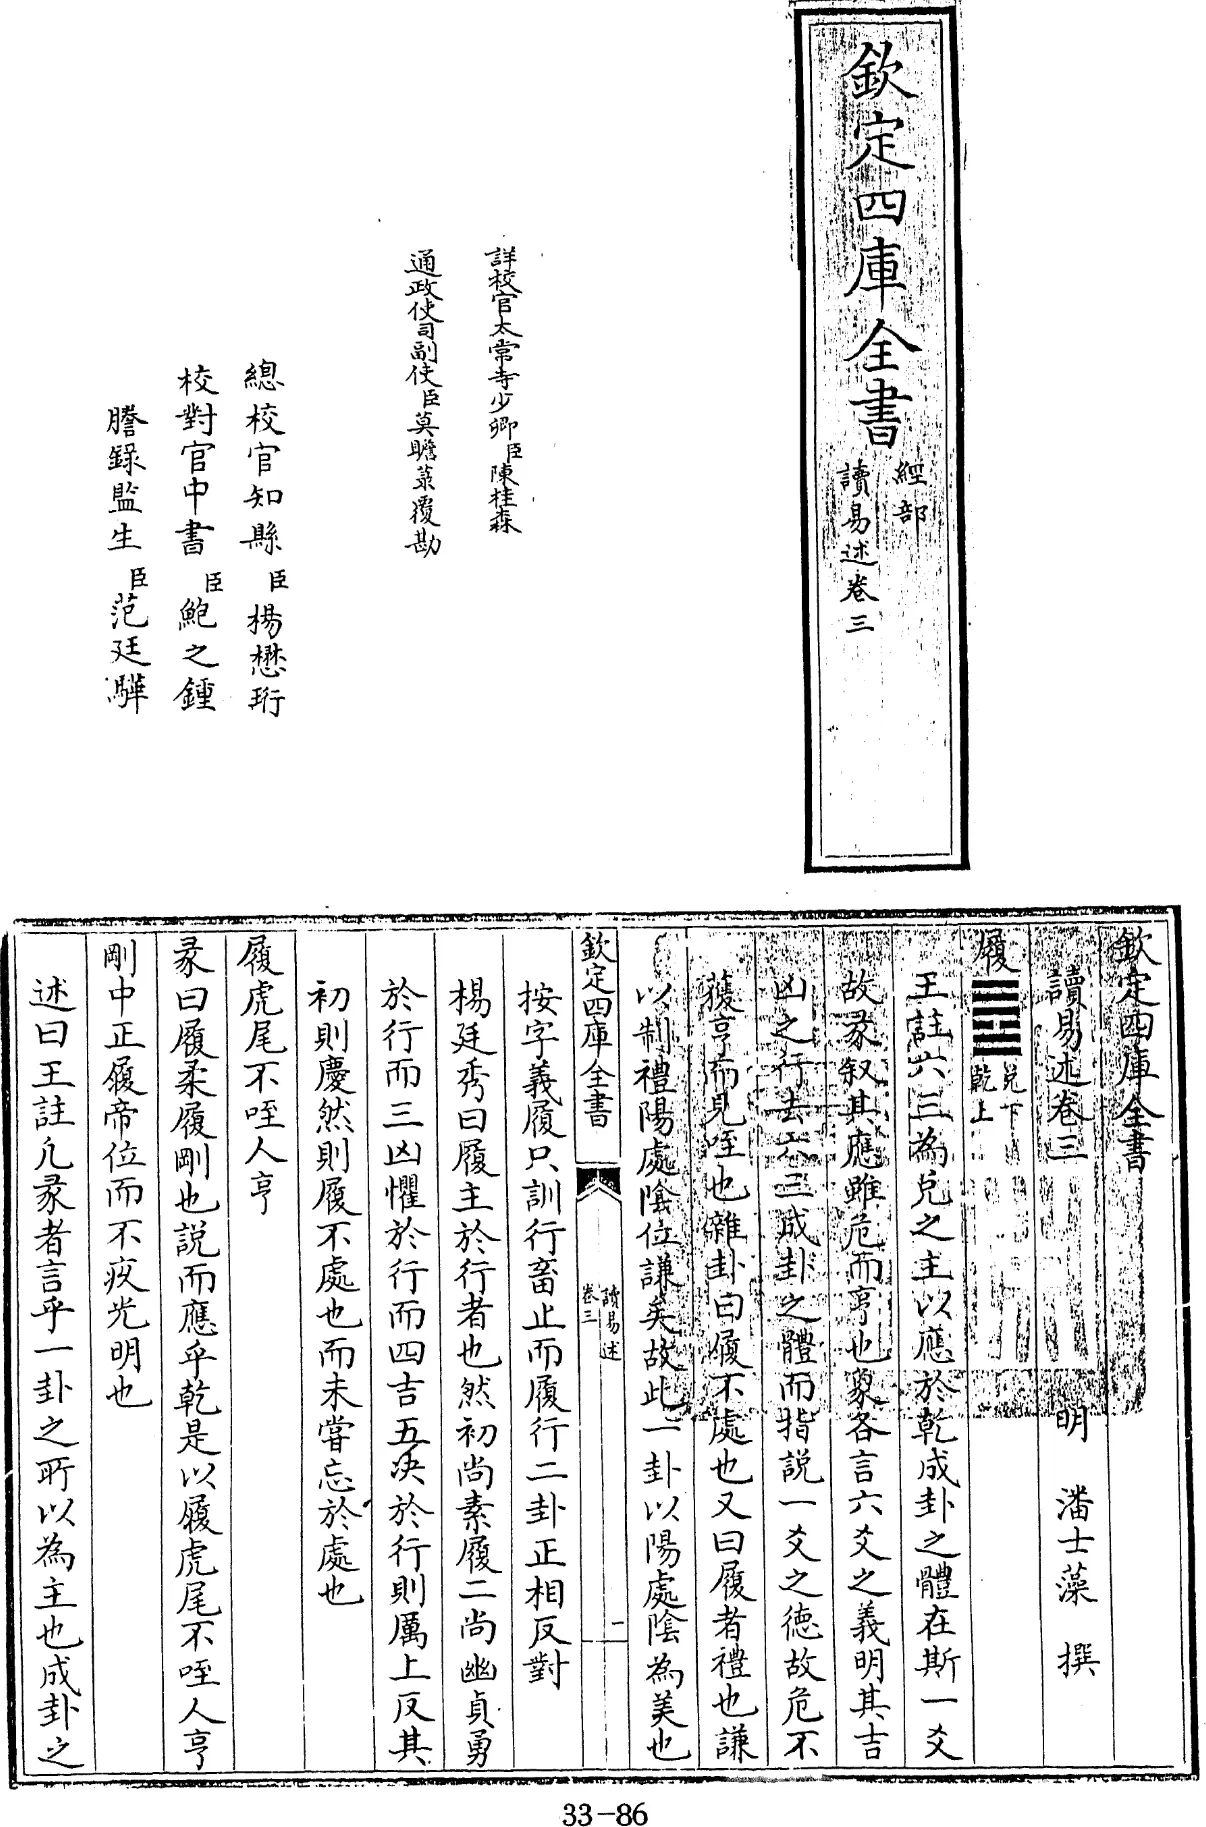 欽定四庫全書
經部
讀易述卷三
詳校官太常寺少卿臣陳桂森
通政使司副使臣莫瞻菉覆勘
總校官知縣臣楊懋珩
校對官中書臣鮑之鍾
謄錄監生臣范廷驊
欽定四庫全書
讀易述卷三 明 潘士藻 撰
履 兌下乾上
王註六三為兌之主以應於乾成卦之體在斯一爻
故彖叙其應雖危而亨也象各言六爻之義明其吉
凶之行去六三成卦之體而指説一爻之徳故危不
獲亨而見咥也雜卦曰履不處也又曰履者禮也謙
以制禮陽處陰位謙矣故此一卦以陽處陰為美也
欽定四庫全書
讀易述
卷三
一
按字義履只訓行畜止而履行二卦正相反對
楊廷秀曰履主於行者也然初尚素履二尚幽貞勇
於行而三凶懼於行而四吉五决於行則厲上反其
初則慶然則履不處也而未嘗忘於處也
履虎尾不咥人亨
彖曰履柔履剛也説而應乎乾是以履虎尾不咥人亨
剛中正履帝位而不疚光明也
述曰王註凡彖者言乎一卦之所以為主也成卦之
33-86